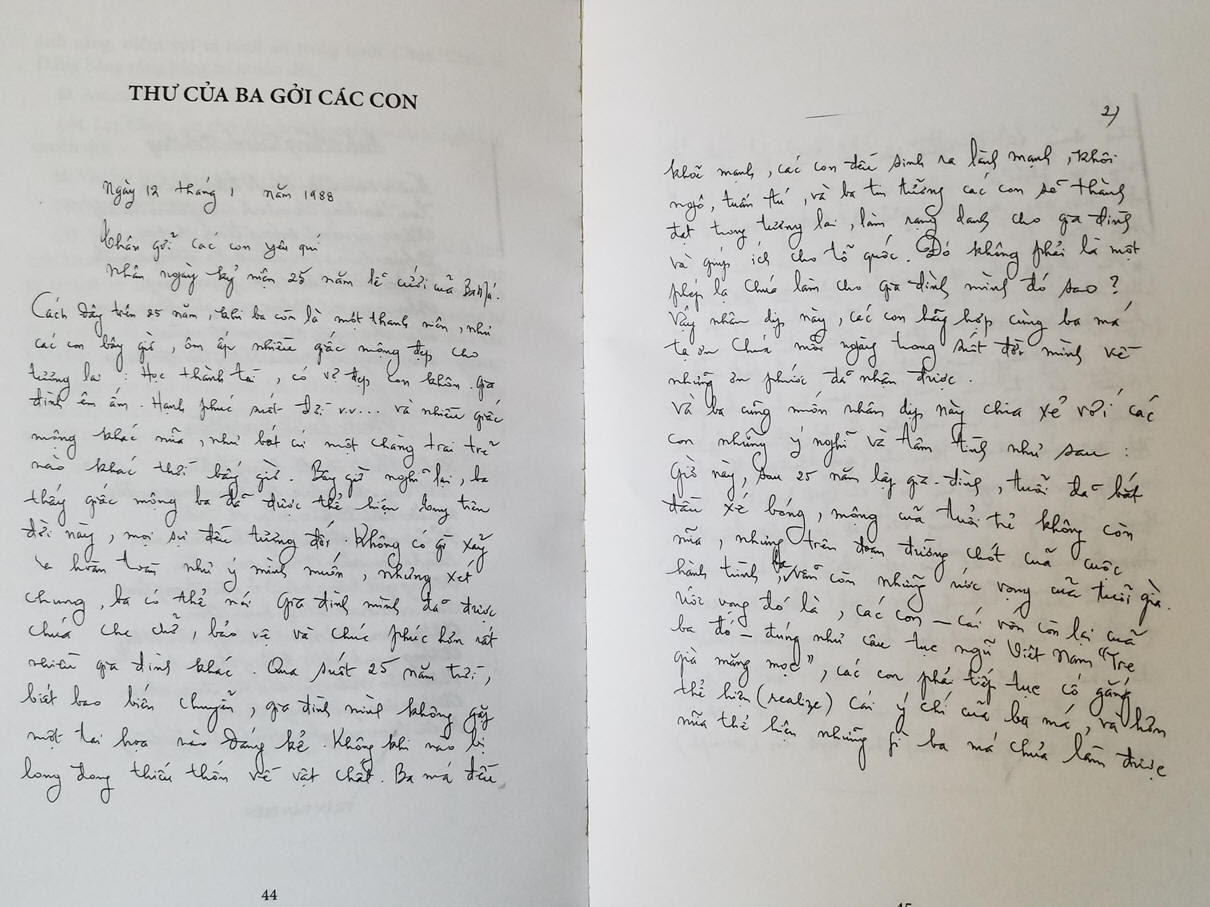 THƯ CỦA BA GỞI CÁC CON
Ngày 12 tháng 1 năm 1988
Thân gởi các con yêu quí
Nhân ngày kỷ niên 25 năm lễ cưới của Ba Má.
Cách đây trên 25 năm, khi ba còn là một thanh niên, như
các con bây giờ, ôm ấp nhiều giấc mộng đẹp cho
tương lai : Học thành tài, có vợ đẹp con khôn. Gia
đình êm ấm. Hạnh phúc suốt đời v.v... và nhiều giấc
mộng khác nữa, như bất cứ một chàng trai trẻ
nào khác thời bấy giờ. Bây giờ nghĩ lại, ba
thấy giấc mộng ba đã được thể hiện. trên
đời này, mọi sự đều tương đối. Không có gì xảy
ra hoàn toàn như ý mình muốn, nhưng xét
chung, ba có thể nói gia đình mình đã được
chúa che chở, bảo vệ và chúc phúc hơn rất
nhiều gia đình khác. Qua suốt 25 năm trời,
biết bao biến chuyển, gia đình mình không gặp
một tai họa nào đáng kể. Không khi nào bị
long đong thiếu thốn về vật chất. Ba má đều
44
2)
khoẽ mạnh, các con đều sinh ra lành mạnh, khôi
ngô, tuấn tú, và ba tin tưởng các con sẽ thành
đạt trong tương lai, làm rạng danh cho gia đình
và giúp ích cho tổ quốc. Đó không phải là một
phép lạ chúa làm cho gia đình mình đó sao?
Vậy nhân dịp này, các con hãy hớp cùng ba má
tạ ơn Chúa mỗi ngày trong suốt đời mình về
những ơn phước đã nhận được.
và ba cũng muốn nhân dịp này chia xẻ với các
con những ý nghĩ và tâm tình như sau :
Giờ này, sau 25 năm lập gia-đình, tuổi đã bắt
đầu xế bóng, mộng của tuổi trẻ không còn
nữa, nhưng trên đoạn đường chót của cuộc
hành trình, ba vẫn còn những ước vọng của tuổi già.
Ước vọng đó là, các con – cái vốn còn lại của
ba đó – đúng như câu tục ngữ Việt Nam "Tre
già măng mọc", các con phải tiếp tục cố gắng
thể hiện (realize) cái ý chí của ba má, và hơn
nữa thể hiện những gì ba má chưa làm được